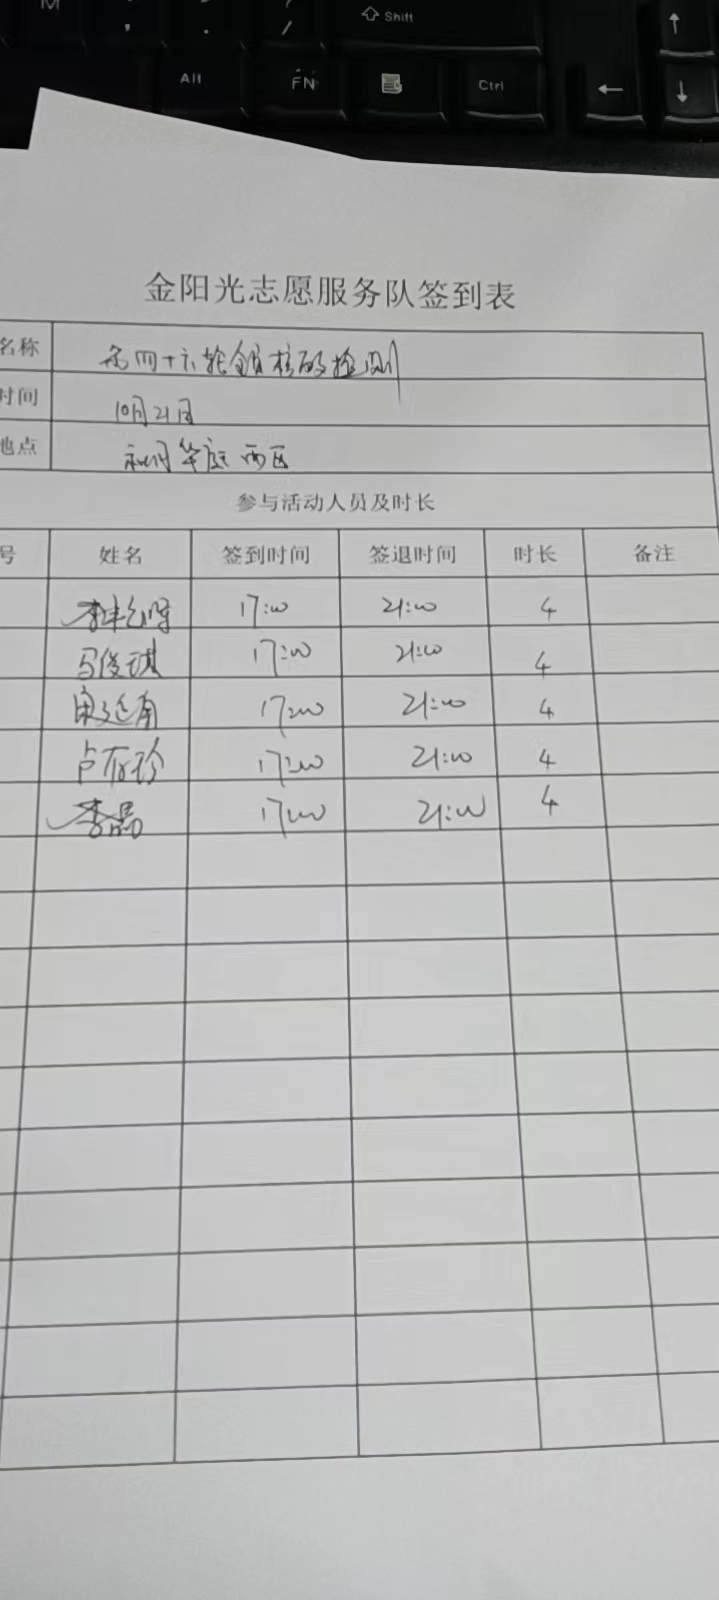 M , . / Shift ↑
Alt FN Ctrl ← ↓
金阳光志愿服务队签到表
名称 第四十六轮全员核酸检测
时间 10月21日
地点 华庭西区
参与活动人员及时长
号 姓名 签到时间 签退时间 时长 备注
17:00 21:00 4
马俊琪 17:00 21:00 4
17:00 21:00 4
卢存玲 17:00 21:00 4
李晶 17:00 21:00 4